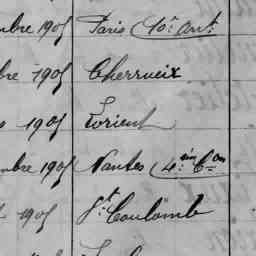 mbre 1905 Paris (10e arrt
bre 1905 Cherrueix
1905 Lorient
mbre 1905 Nantes (4ème Con
1905 St Coulomb